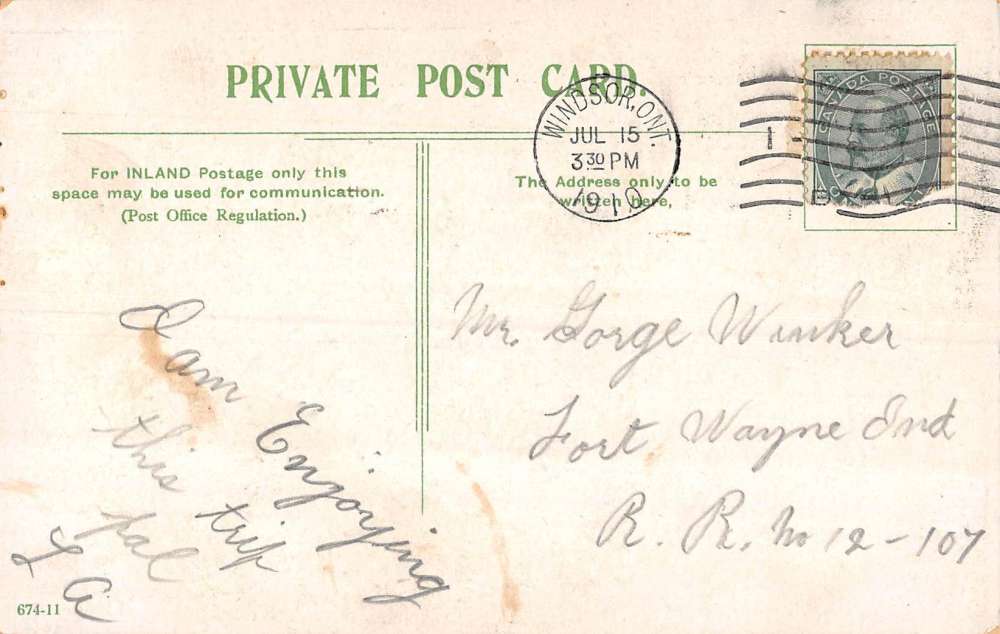 PRIVATE POST CARD.
WINDSOR, ONT.
JUL 15
3 30 PM
1910
1
CANADA POSTAGE
For INLAND Postage only this
space may be used for communication.
(Post Office Regulation.)
The Address only to be
written here,
Mr. Gorge Winker
Fort Wayne Ind
R. R. No 12-107
I am Enjoying
this trip
pal
L A
674-11